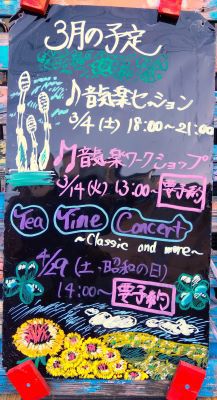 3月の予定
♪音気楽セッション
3/4(土) 18:00~21:00
♫音気楽ワークショップ
3/14(火) 13:00~ 要予約
Tea Time Concert
~Classic and more~
4/29(土・昭和の日)
14:00~ 要予約